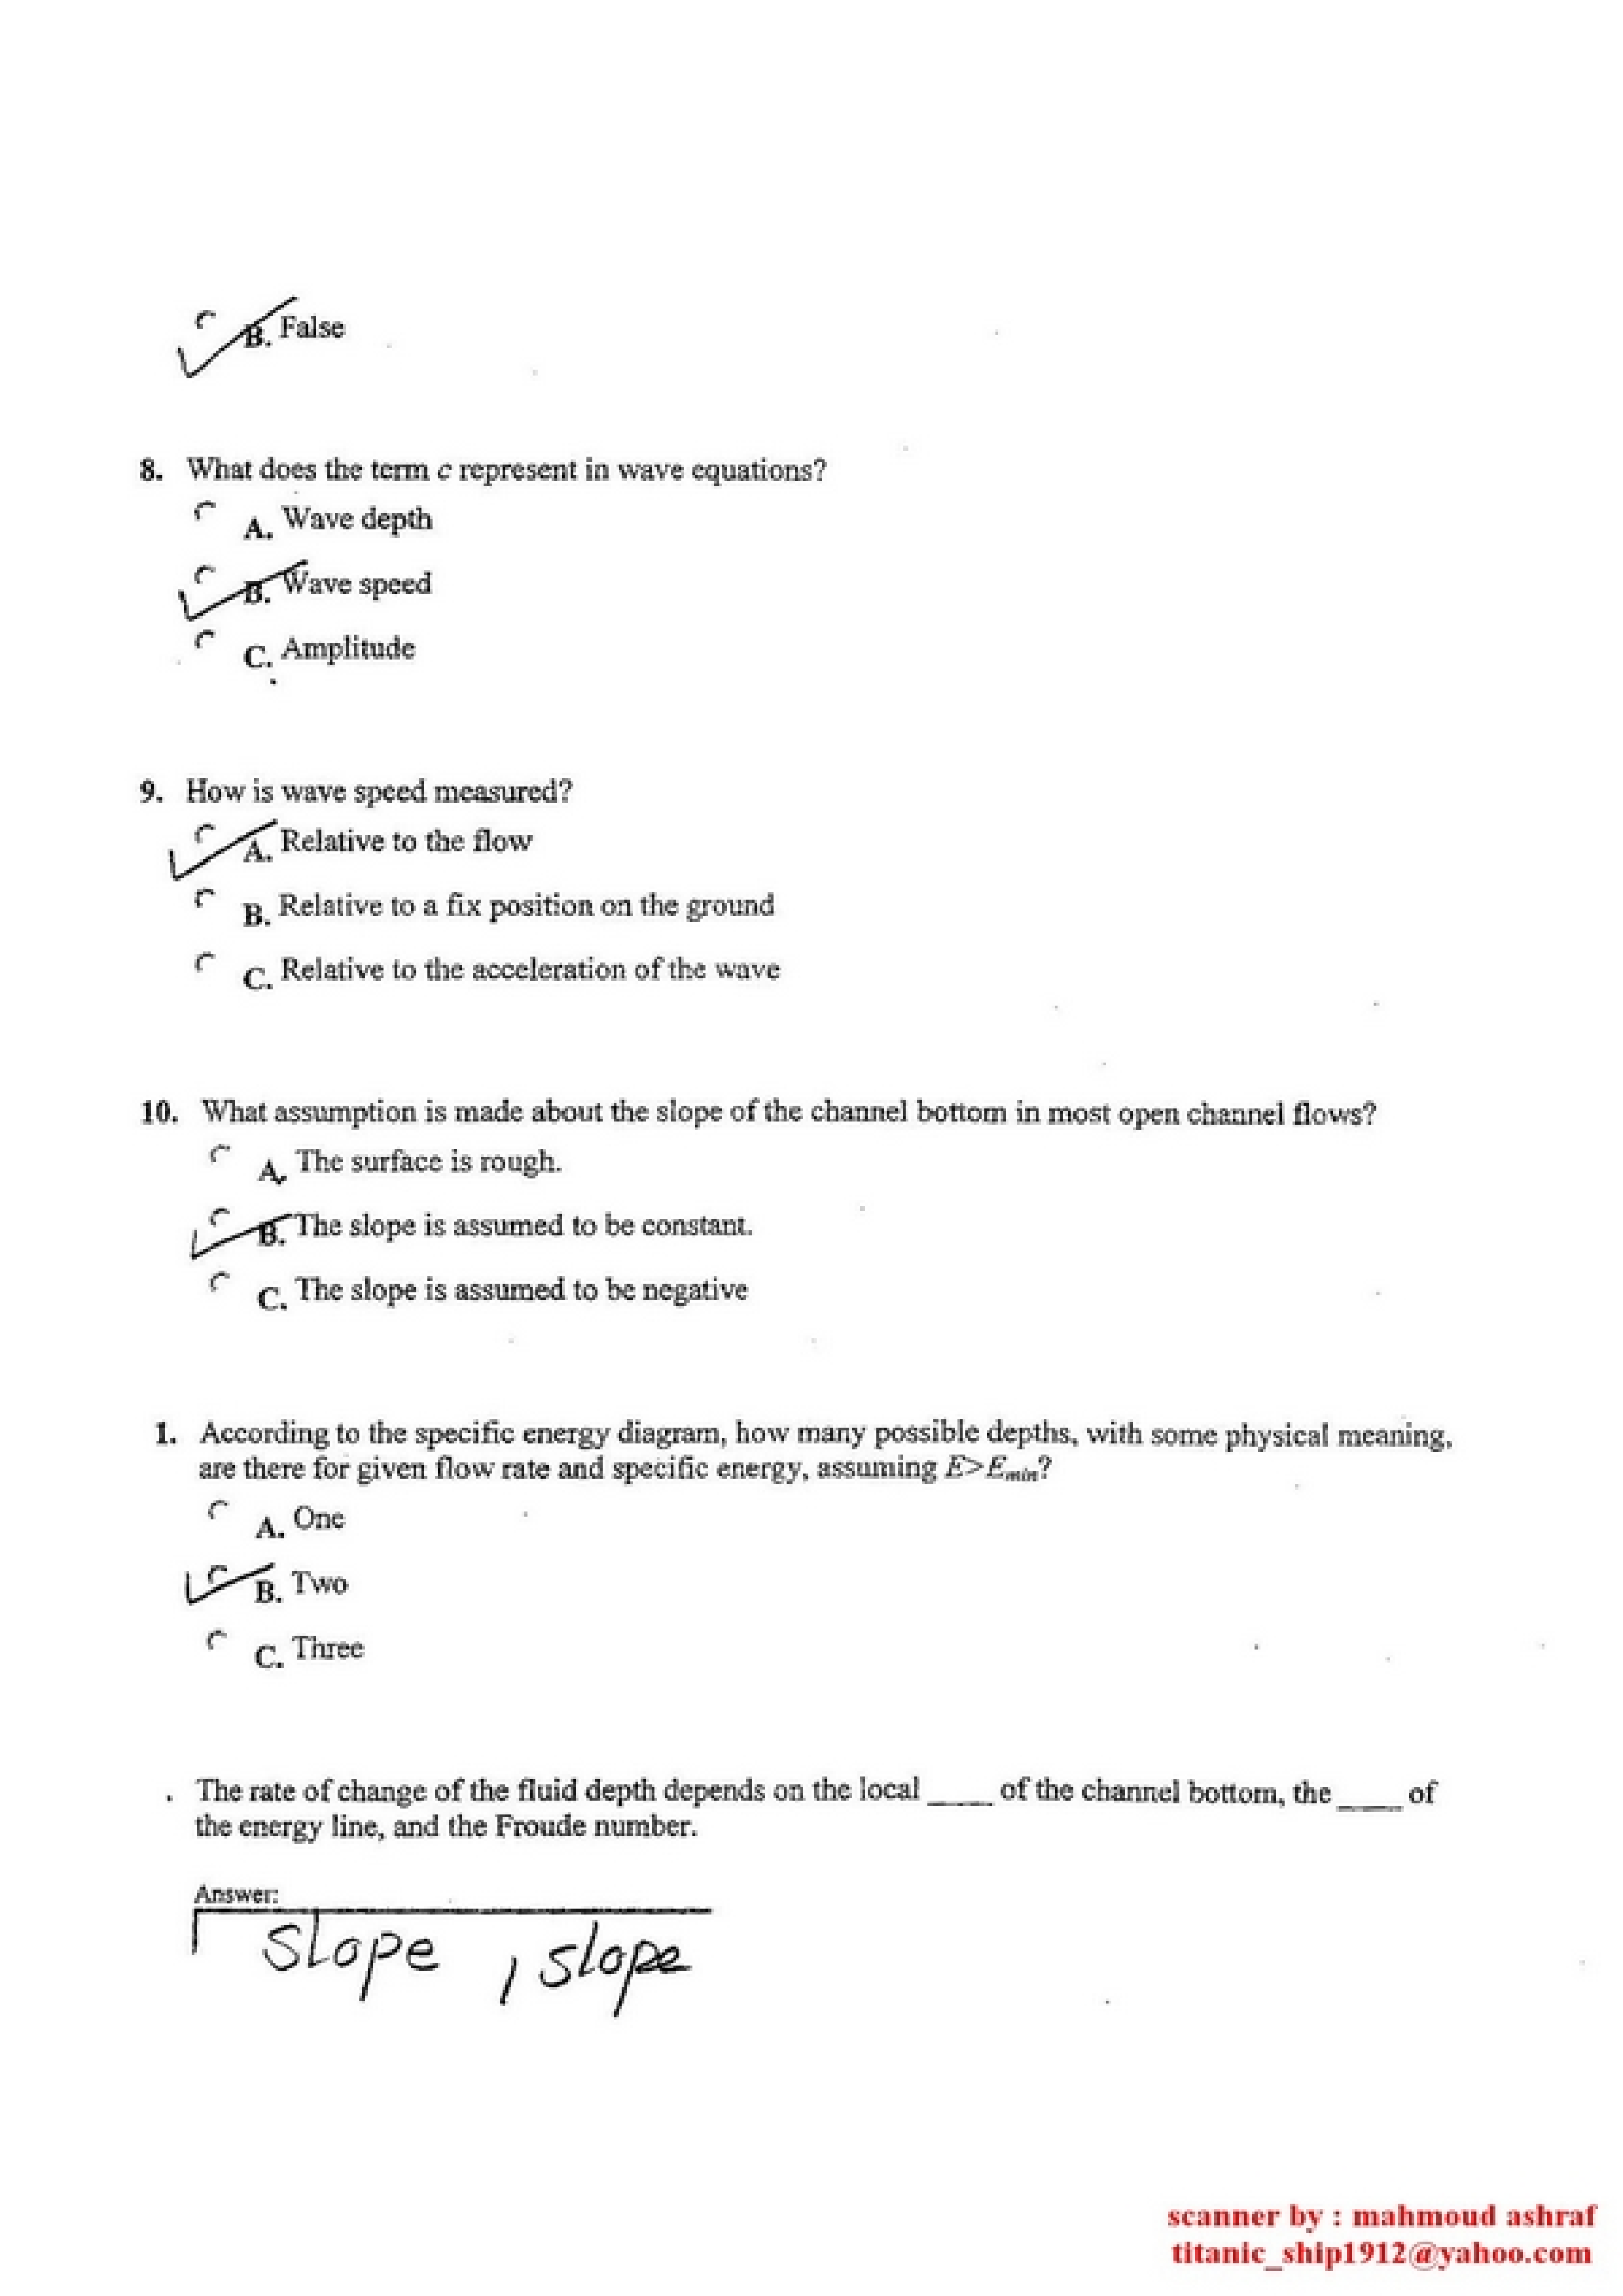 B. False
8. What does the term c represent in wave equations?
A. Wave depth
B. Wave speed
C. Amplitude
9. How is wave speed measured?
A. Relative to the flow
B. Relative to a fix position on the ground
C. Relative to the acceleration of the wave
10. What assumption is made about the slope of the channel bottom in most open channel flows?
A. The surface is rough.
B. The slope is assumed to be constant.
C. The slope is assumed to be negative
1. According to the specific energy diagram, how many possible depths, with some physical meaning,
are there for given flow rate and specific energy, assuming E>Emin?
A. One
B. Two
C. Three
. The rate of change of the fluid depth depends on the local ____ of the channel bottom, the ____ of
the energy line, and the Froude number.
Answer:
slope , slope
scanner by : mahmoud ashraf
titanic_ship1912@yahoo.com